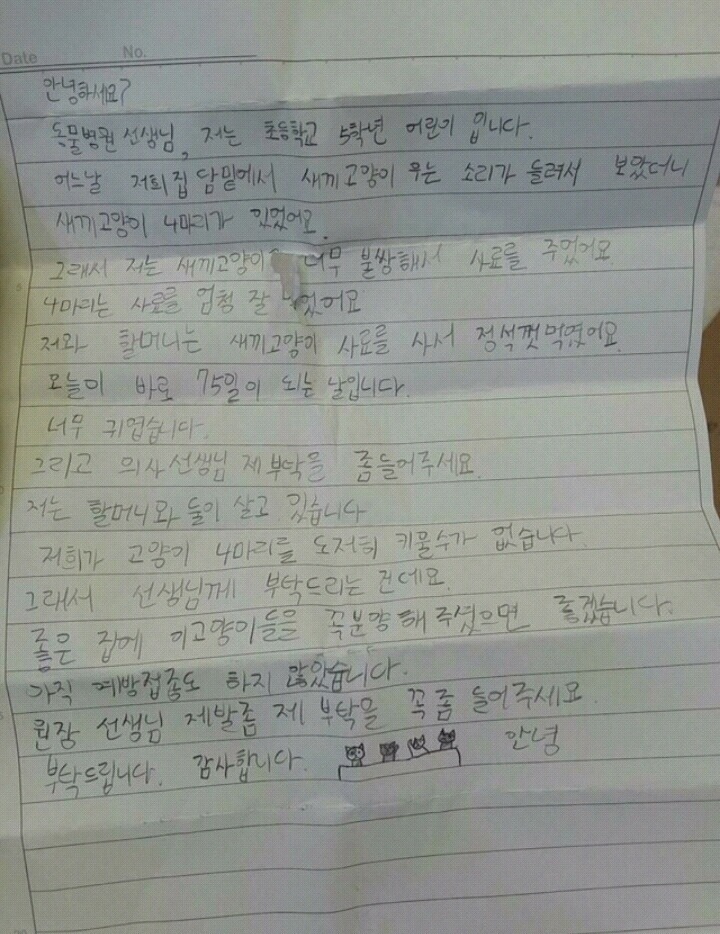 Date No.
안녕하세요?
동물병원 선생님, 저는 초등학교 5학년 어린이 입니다.
어느날 저희 집 담밑에서 새끼고양이 우는 소리가 들려서 보았더니
새끼고양이 4마리가 있었어요.
그래서 저는 새끼고양이 너무 불쌍해서 사료를 주었어요.
4마리는 사료를 엄청 잘
저와 할머니는 새끼고양이 사료를 사서 정석껏먹였어요
오늘이 바로 75일이 되는 날입니다.
너무 귀엽습니다.
그리고 의사선생님 제부탁을 좀들어주세요.
저는 할머니와 둘이 살고 있습니다
저희가 고양이 4마리를 도저희 키울수가 없습니다.
그래서 선생님께 부탁드리는 건데요.
좋은 집에 이고양이들을 꼭분양해주셨으면 좋겠습니다.
아직 예방접종도 하지 않았습니다.
원장 선생님 제발좀 제 부탁을 꼭좀 들어주세요.
부탁드립니다. 감사합니다. 안녕